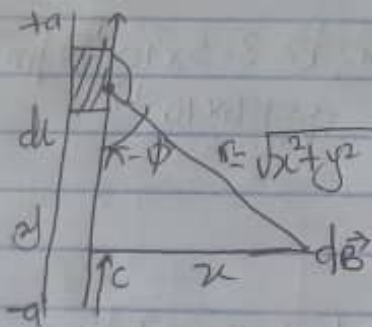 +a
dl
π-ϕ
r=√x²+y²
y
x
dB⃗
C
-a